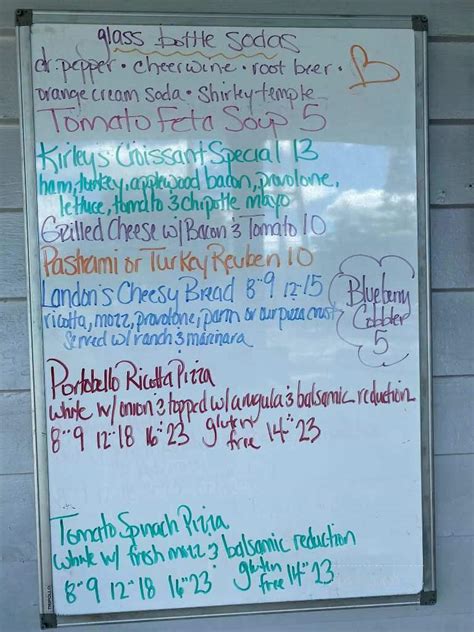 glass bottle sodas
dr. pepper • cheerwine • root beer •
orange cream soda • Shirley temple
Tomato Feta Soup 5
Kirley's Croissant Special 13
ham, turkey, applewood bacon, provolone,
lettuce, tomato & chipotle mayo
Grilled Cheese w/ Bacon & Tomato 10
Pashami or Turkey Reuben 10
Landon's Cheesy Bread 8" 9 12" 15
ricotta, mozz, provolone, parm on our pizza crust
served w/ ranch & marinara
Blueberry
Cobbler
5
Portobello Ricotta Pizza
white w/ onion & topped w/ arugula & balsamic reduction
8" 9 12" 18 16" 23 gluten free 14" 23
Tomato Spinach Pizza
white w/ fresh mozz & balsamic reduction
8" 9 12" 18 16" 23 gluten free 14" 23